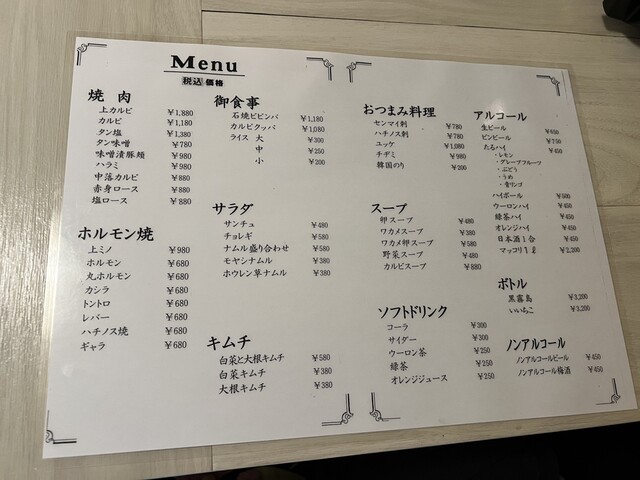 Menu
税込 価格
焼 肉
上カルビ ¥1,880
カルビ ¥1,180
タン塩 ¥1,380
タン味噌 ¥780
味噌漬豚頬 ¥980
ハラミ ¥980
中落カルビ ¥880
赤身ロース ¥880
塩ロース ¥880
ホルモン焼
上ミノ ¥980
ホルモン ¥680
丸ホルモン ¥680
カシラ ¥680
トントロ ¥680
レバー ¥680
ハチノス焼 ¥680
ギャラ ¥680
御食事
石焼ビビンバ ¥1,180
カルビクッパ ¥1,080
ライス 大 ¥300
中 ¥250
小 ¥200
サラダ
サンチュ ¥480
チョレギ ¥580
ナムル盛り合わせ ¥580
モヤシナムル ¥380
ホウレン草ナムル ¥380
キムチ
白菜と大根キムチ ¥580
白菜キムチ ¥380
大根キムチ ¥380
おつまみ料理
センマイ刺 ¥780
ハチノス刺 ¥780
ユッケ ¥1,080
チヂミ ¥980
韓国のり ¥200
スープ
卵スープ ¥480
ワカメスープ ¥380
ワカメ卵スープ ¥580
野菜スープ ¥480
カルビスープ ¥880
ソフトドリンク
コーラ ¥300
サイダー ¥300
ウーロン茶 ¥250
緑茶 ¥250
オレンジジュース ¥250
アルコール
生ビール ¥450
ビンビール ¥750
たるハイ ¥450
・レモン
・グレープフルーツ
・ぶどう
・うめ
・青リンゴ
ハイボール ¥500
ウーロンハイ ¥450
緑茶ハイ ¥450
オレンジハイ ¥450
日本酒1合 ¥450
マッコリ1ℓ ¥2,200
ボトル
黒霧島 ¥3,200
いいちこ ¥3,200
ノンアルコール
ノンアルコールビール ¥450
ノンアルコール梅酒 ¥450